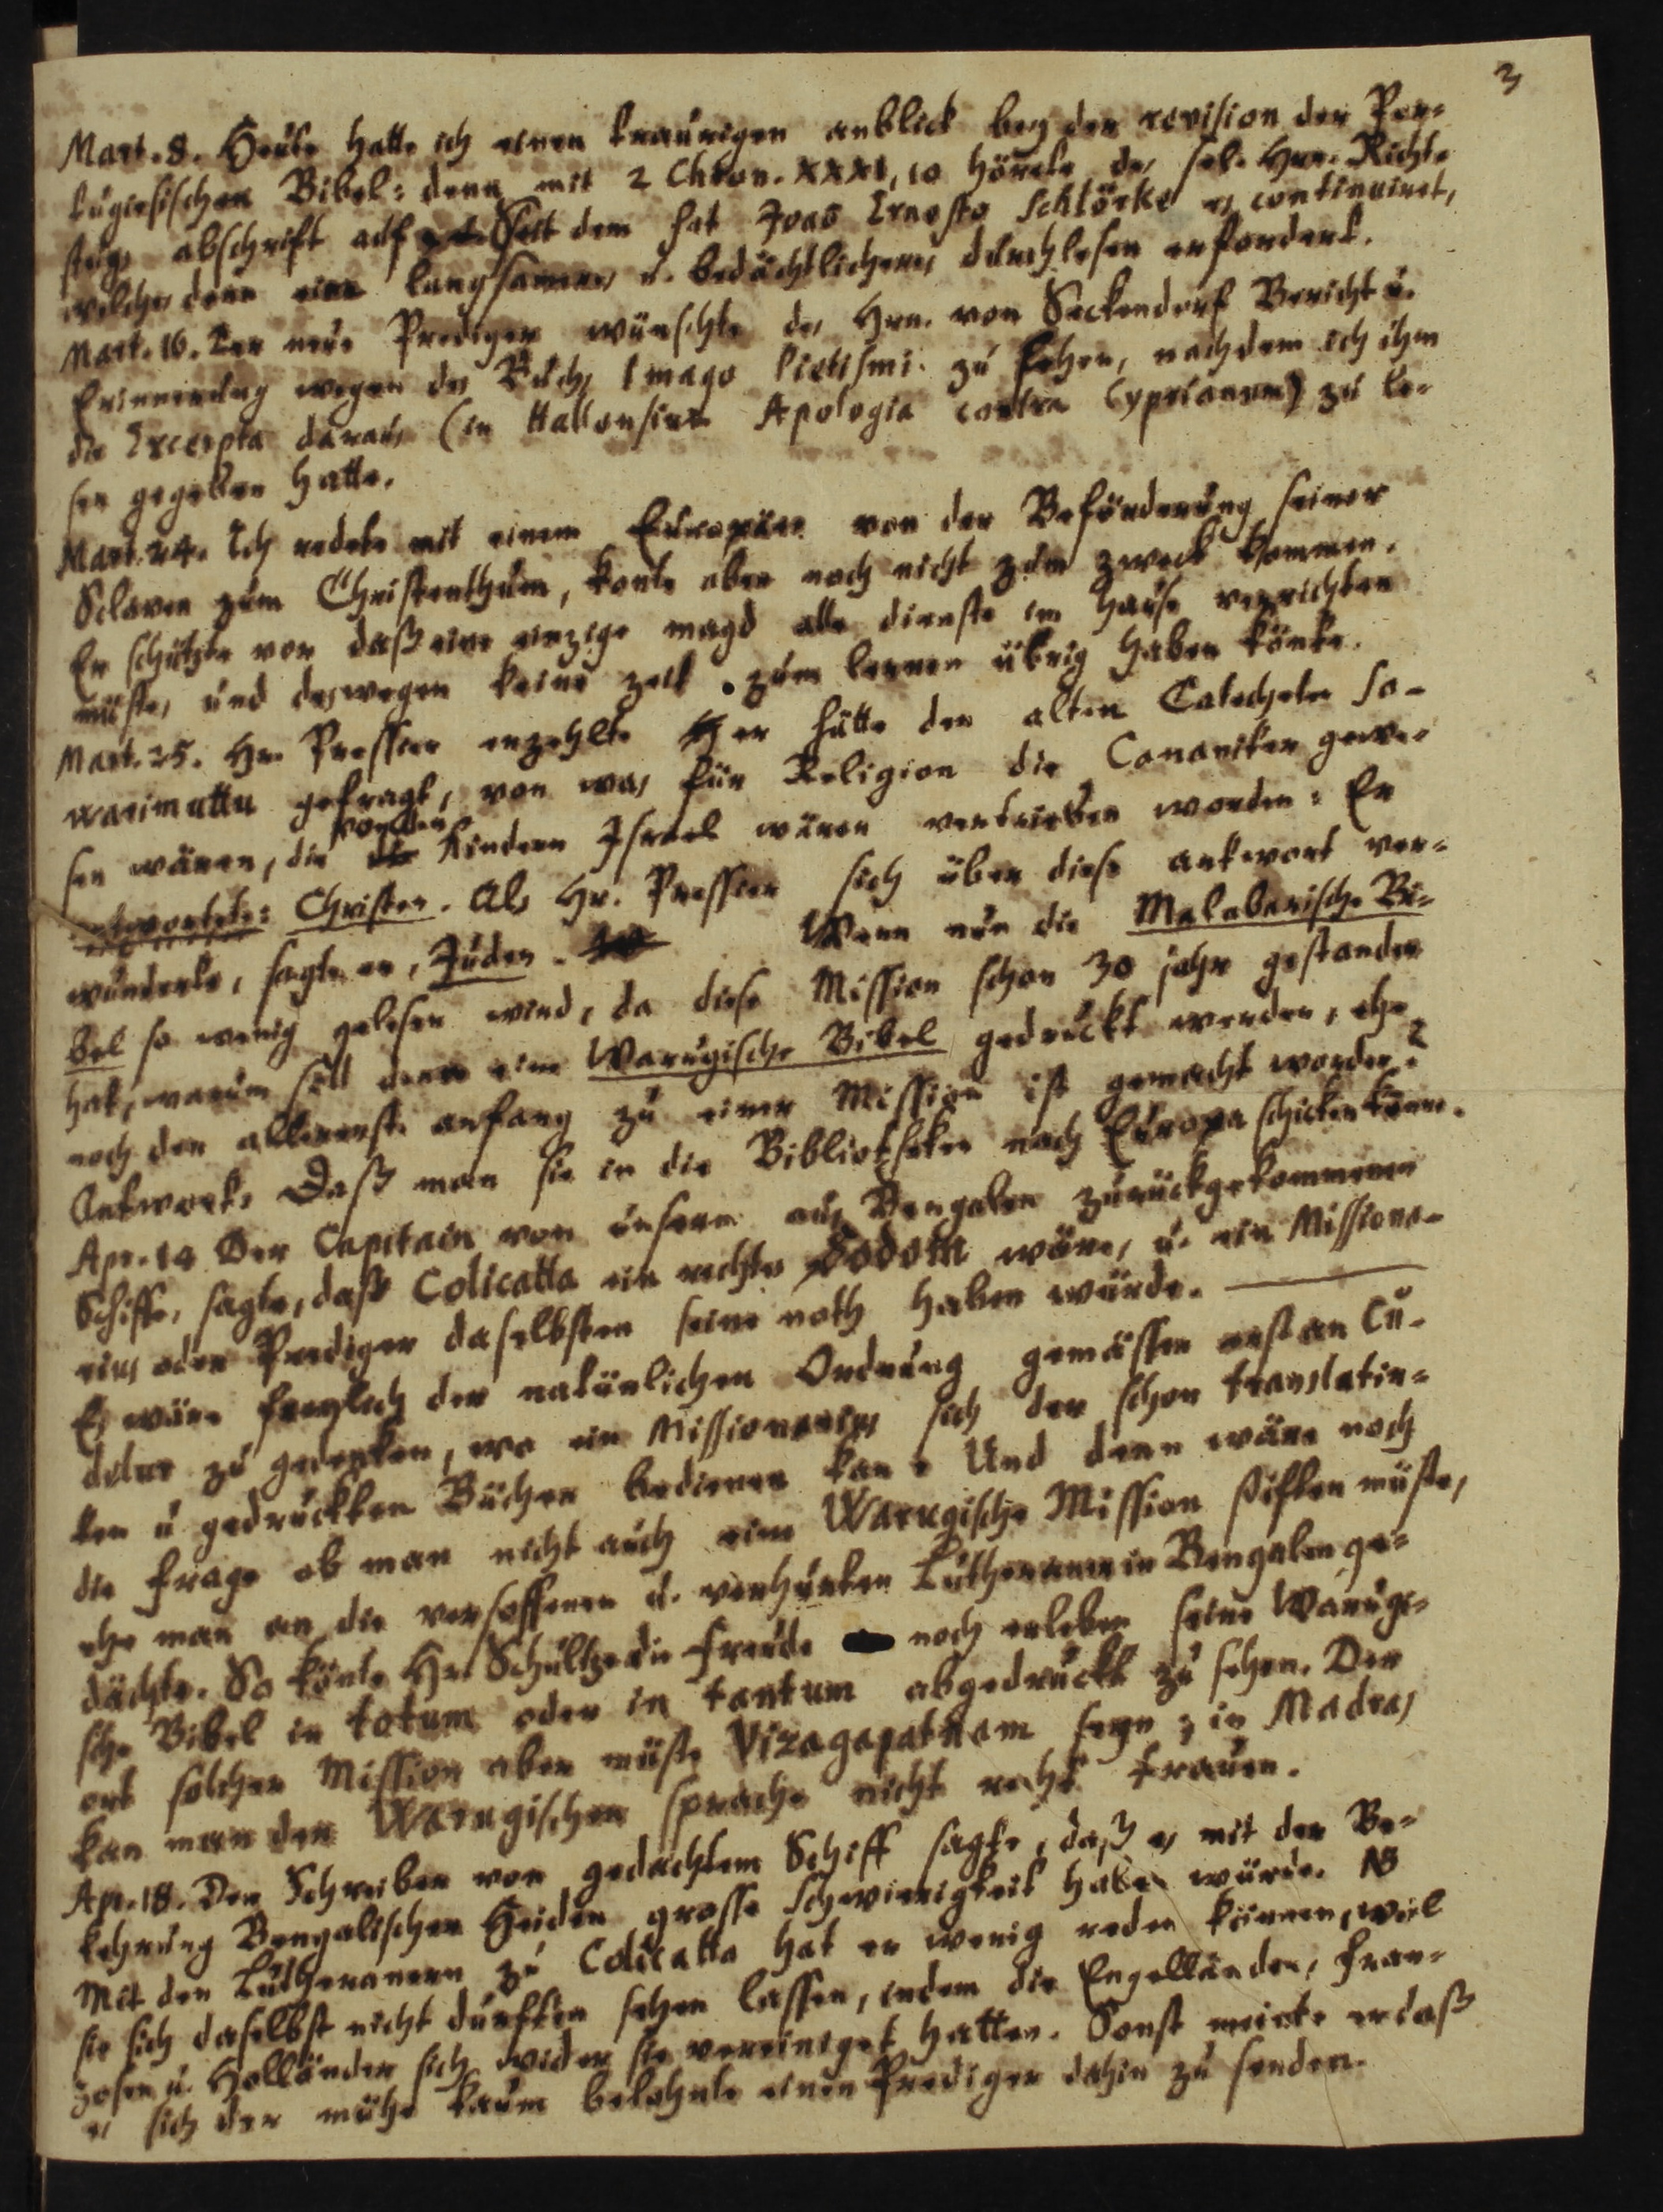 3
Mart. 8. Heute hatte ich einen traurigen anblick bey der revision der Por-
tugiesischen Bibel: denn mit 2 Chron. XXXI, 10 hörete des sel. Hrn. Richt-
steigs abschrift auf. Seit dem hat Joaõ Ernesto Schlörke es continuiret,
welches denn ein langsameres u. bedächtlicheres durchlesen erfordert.
Mart. 16. Der neue Prediger wünschte des Hrn. von Seckendorf Bericht u.
Erinnerung wegen des Buchs Imago Pietismi zu sehen, nachdem ich ihm
die Excerpta daraus (in Hallensium Apologia contra Cyprianum) zu le-
sen gegeben hatte.
Mart. 24. Ich redete mit einem Europäer von der Beförderung seiner
Sclaven zum Christenthum, konte aber noch nicht zum zweck kommen.
Er schützte vor daß eine einzige magd alle dienste im Hause verrichten
müste, und deswegen keine zeit zum lernen übrig haben könte.
Mart. 25. Hr. Pressier erzehlte er hätte den alten Catecheten Sa-
warimuttu gefragt, von was für Religion die Cananiter gewe-
sen wären, die von den Kindern Israel wären vertrieben worden: Er
antwortete: Christen. Als Hr. Pressier sich über diese antwort ver-
wunderte, sagte er, Juden. Wenn nun die Malabarische Bi-
bel so wenig gelesen wird, da diese Mission schon 30 jahr gestanden
hat, warum soll denn eine Warugische Bibel gedruckt werden, ehe
noch der allererste anfang zu einer Mission ist gemacht worden?
Antwort: Daß man sie in die Bibliotheken nach Europa schicken könne.
Apr. 14 Der Capitain von unserm aus Bengalen zurückgekommenen
Schiffe, sagte, daß Colicatta ein rechtes Sodom wäre, u. ein Missiona-
rius oder Prediger daselbsten seine noth haben würde.
Es wäre freylich der natürlichen Ordnung gemässer erst an Cu-
delur zu gedenken, wo ein Missionarius sich der schon translatir-
ten u gedruckten Bücher bedienen kan. Und denn wäre noch
die frage ob man nicht auch eine Warugische Mission stiften müste,
ehe man an die versoffenen u. verhurten Lutheraner in Bengalen ge-
dächte. So könte Hr. Schultze die Freude noch erleben seine Warugi-
sche Bibel in totum oder in tantum abgedruckt zu sehen. Der
ort solcher Mission aber müste Vizagapatnam seyn; in Madras
kan man der Warugischen sprache nicht recht trauen.
Apr. 18. Der Schreiber von gedachtem Schiff sagte, daß es mit der Be-
kehrung Bengalischer Heiden grosse schwierigkeit haben würde. NB
Mit den Lutheranern zu Colicatta hat er wenig reden können, weil
sie sich daselbst nicht durften sehen lassen, indem die Engelländer, Fran-
zosen u. Holländer sich wider sie vereiniget hatten. Sonst meinte er daß
es sich der mühe kaum belohnte einen Prediger dahin zu senden.